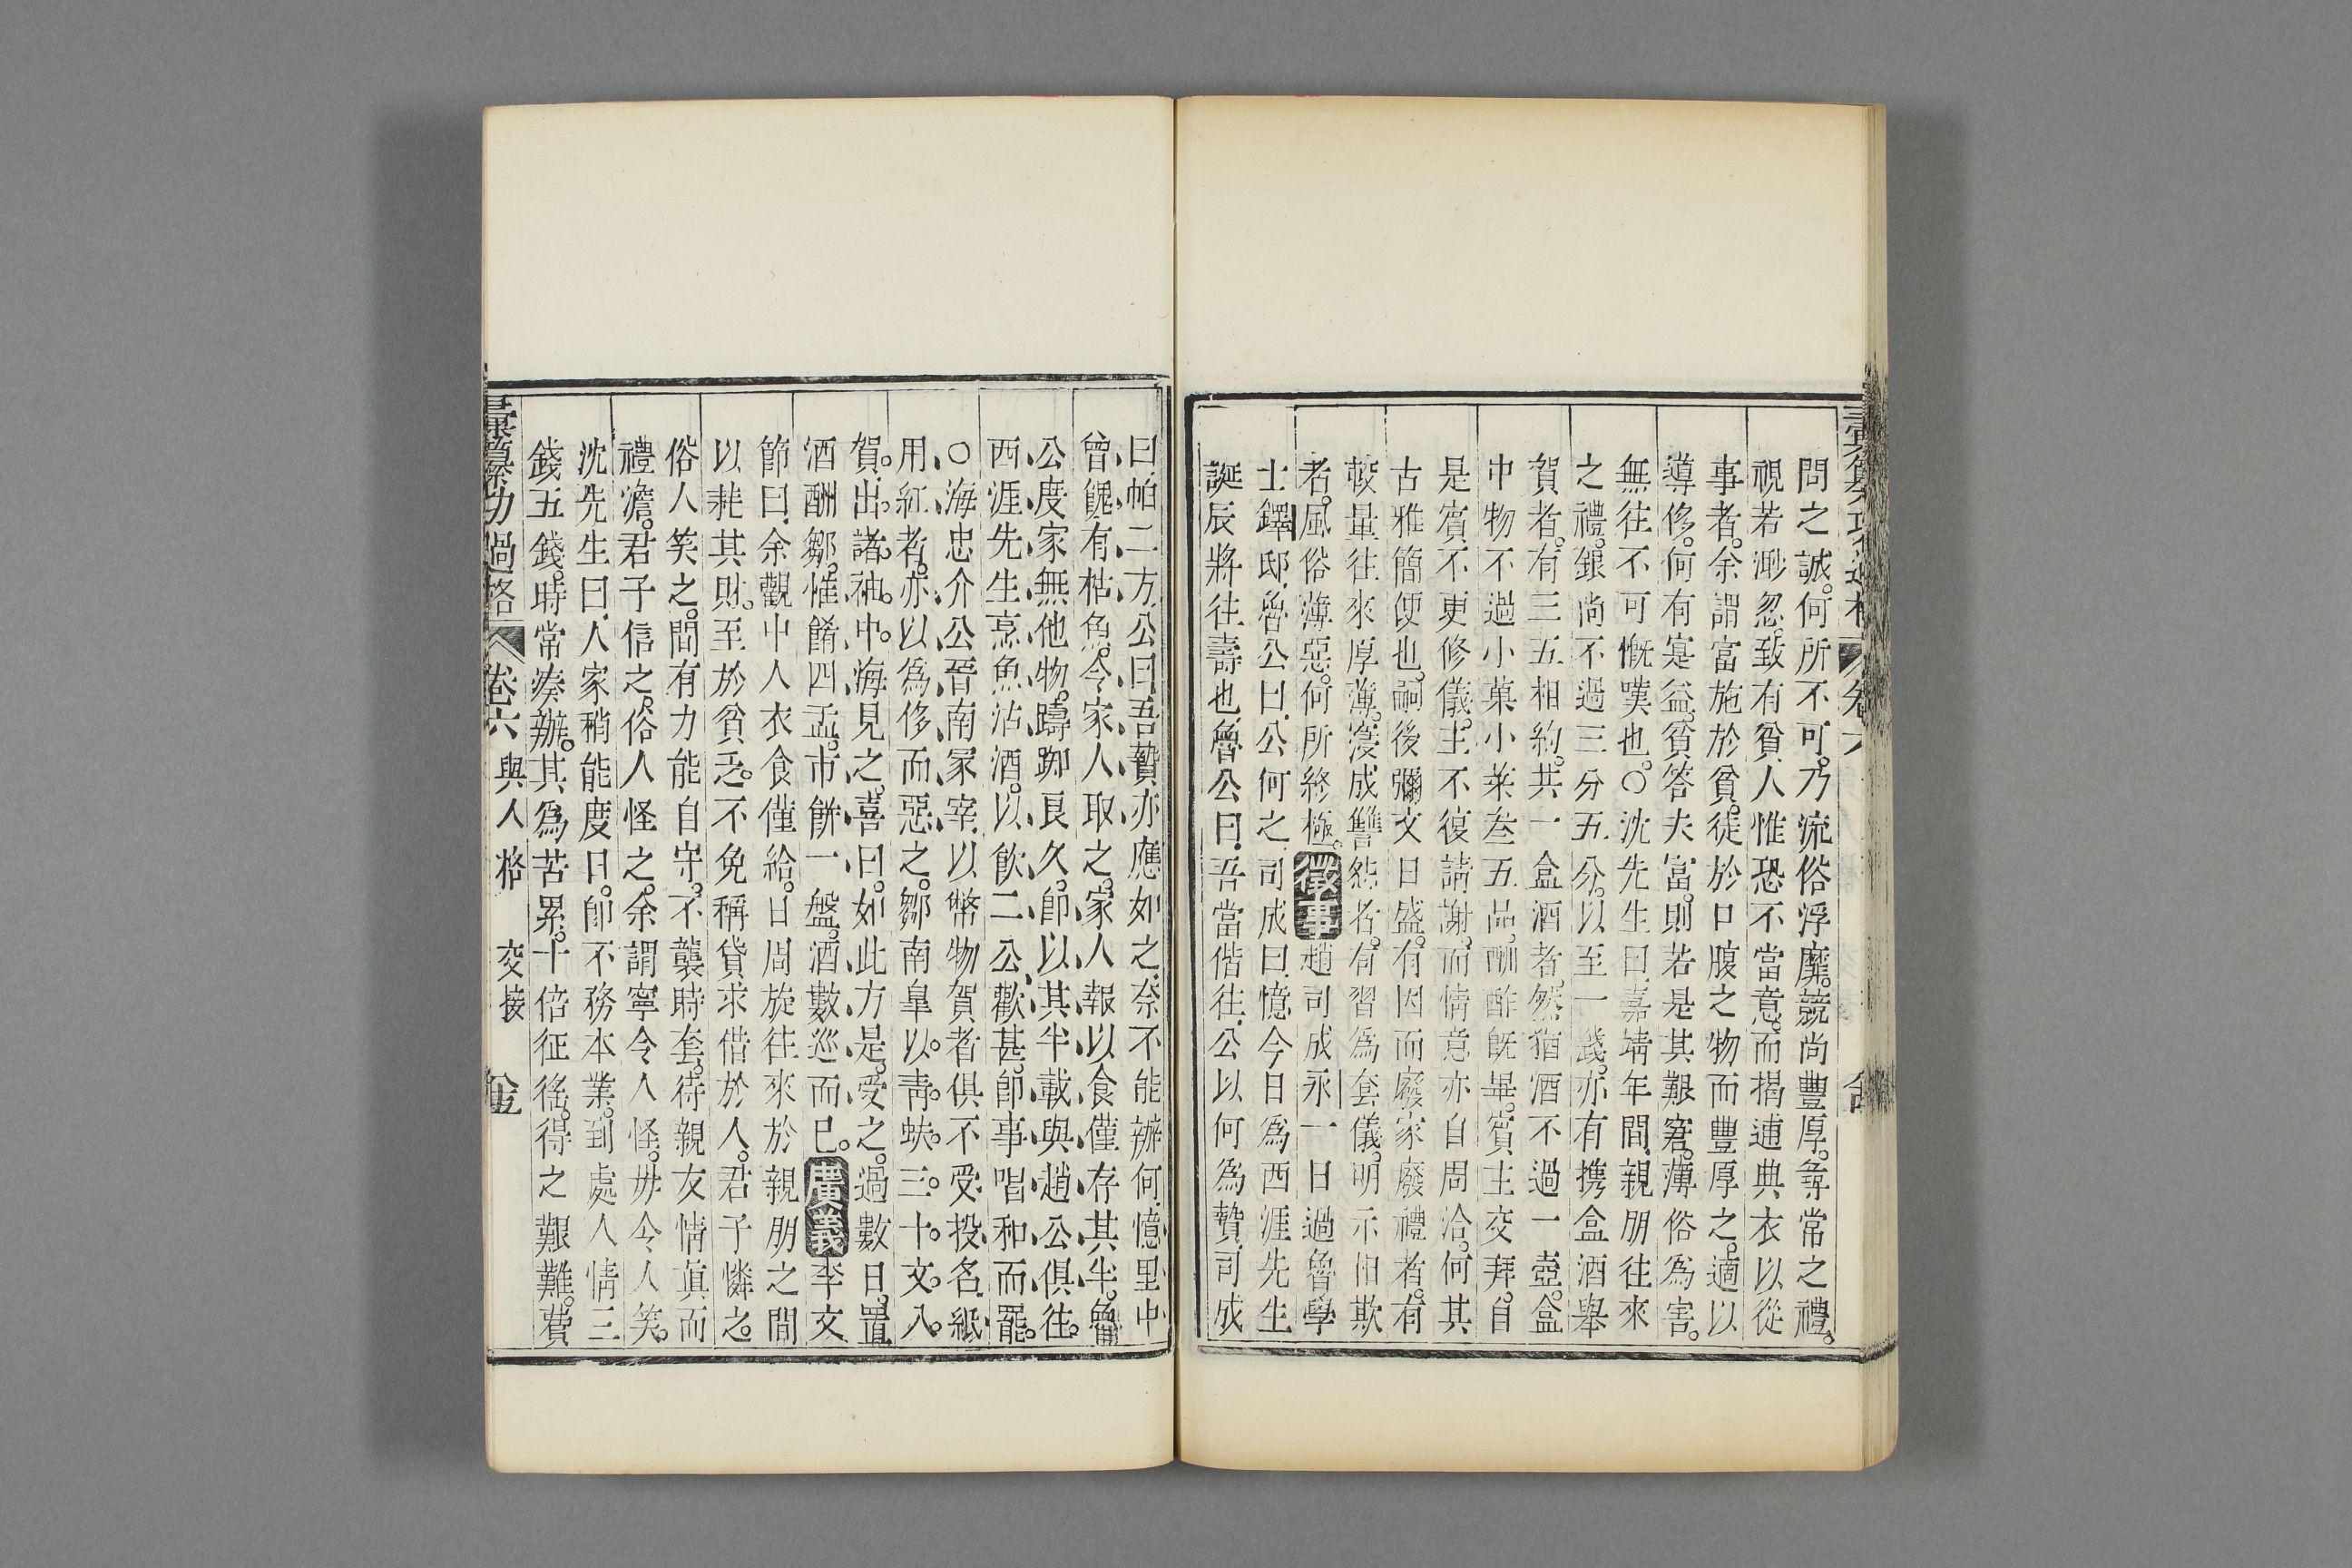 問之誠。何所不可。乃流俗浮靡。競尚豐厚。尋常之禮。
視若渺忽。致有貧人惟恐不當意。而揭逋典衣以從
事者。余謂富施於貧。徒於口腹之物而豐厚之。適以
導侈。何有寔益。貧答夫富。則若是其艱窘。薄俗為害。
無往不可慨嘆也。○沈先生曰。嘉靖年間。親朋往來
之禮。銀尚不過三分五分。以至一錢。亦有攜盒酒舉
賀者。有三五相約。共一盒酒者。然猶酒不過一壺。盒
中物不過小菓小菜叁五品。酬酢既畢。賓主交拜。自
是賓不更修儀。主不復請謝。而情意亦自周洽。何其
古雅簡便也。嗣後彌文日盛。有因而廢家廢禮者。有
較量往來厚薄。寖成讐怨者。有習為套儀。明示相欺
者。風俗薄惡。何所終極。徵事趙司成永一日過魯學
士鐸邸。魯公曰。公何之。司成曰。憶今日為西涯先生
誕辰。將往壽也。魯公曰。吾當偕往。公以何為贄。司成
曰。帕二方。公曰。吾贄亦應如之。奈不能辦何。憶里中
曾餽有枯魚。令家人取之。家人報以食僅存其半。魯
公度家無他物。躊踟良久。即以其半載與趙公俱往。
西涯先生烹魚沽酒。以飲二公。歡甚。即事唱和而罷。
○海忠介公晉南冢宰。以幣物賀者俱不受。投名紙
用紅者。亦以為侈而惡之。鄒南臯以青蚨三十文入
賀。出諸袖中。海見之。喜曰。如此方是。受之。過數日。置
酒酬鄒。惟餚四盂。市餅一盤。酒數巡而已。廣義李文
節曰。余觀中人衣食僅給。日周旋往來於親朋之間
以耗其財。至於貧乏。不免稱貸求借於人。君子憐之。
俗人笑之。間有力能自守。不襲時套。待親友情真而
禮澹。君子信之。俗人怪之。余謂寧令人怪。毋令人笑。
沈先生曰。人家稍能度日。即不務本業。到處人情三
錢五錢。時常湊辦。其為苦累。十倍征徭。得之艱難。費
彙纂功過格 卷六 與人格 交接